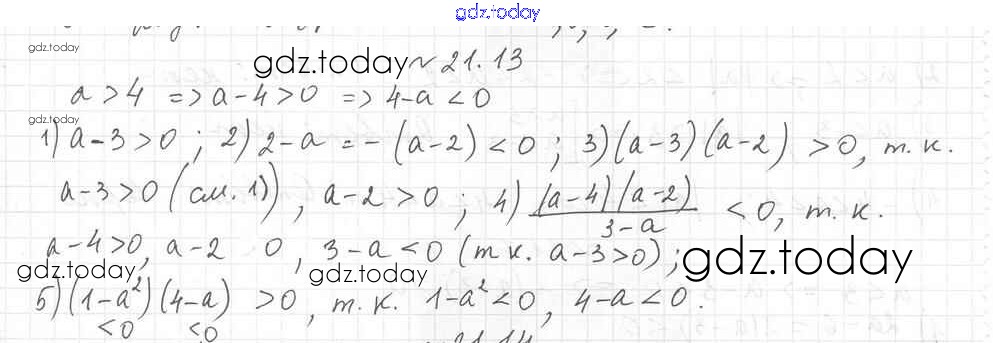 gdz.today
gdz.today
gdz.today № 21.13
a > 4 => a-4 > 0 => 4-a < 0
gdz.today
1) a-3 > 0 ; 2) 2-a = -(a-2) < 0 ; 3) (a-3)(a-2) > 0, т.к.
a-3 > 0 (см. 1)), a-2 > 0 ; 4) (a-4)(a-2)/3-a < 0, т.к.
a-4 > 0, a-2 0, 3-a < 0 (т.к. a-3 > 0) ; gdz.today
gdz.today gdz.today
5) (1-a²)(4-a) > 0, т.к. 1-a² < 0, 4-a < 0.
<0 <0
21.14